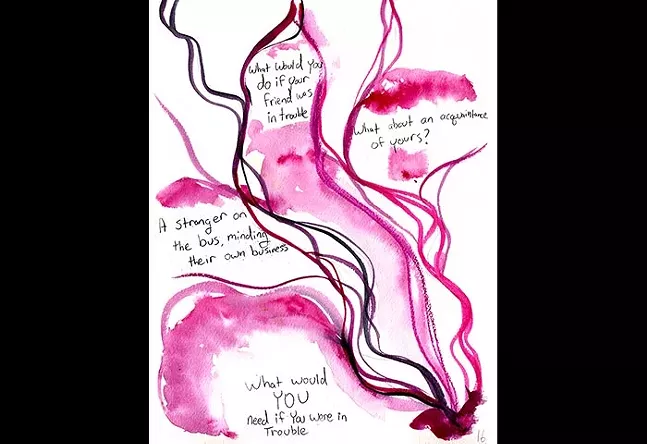 What would you
do if your
friend was
in trouble
What about an acquaintance
of yours?
A stranger on
the bus, minding
their own business
What would
YOU
need if You were in
Trouble
16